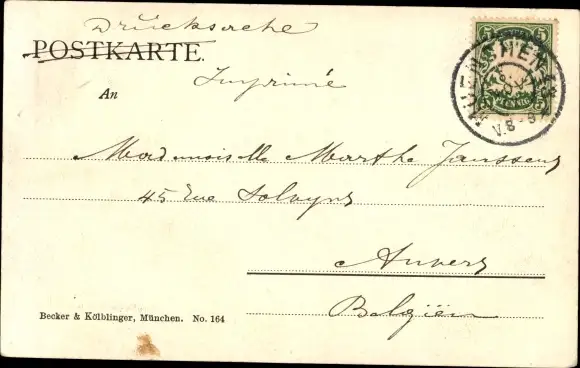 Drucksache
POSTKARTE.
Imprimé
An
Mademoiselle Marthe Janssens
45 rue Solvyns
Anvers
Belgien
Becker & Kölblinger, München. No. 164